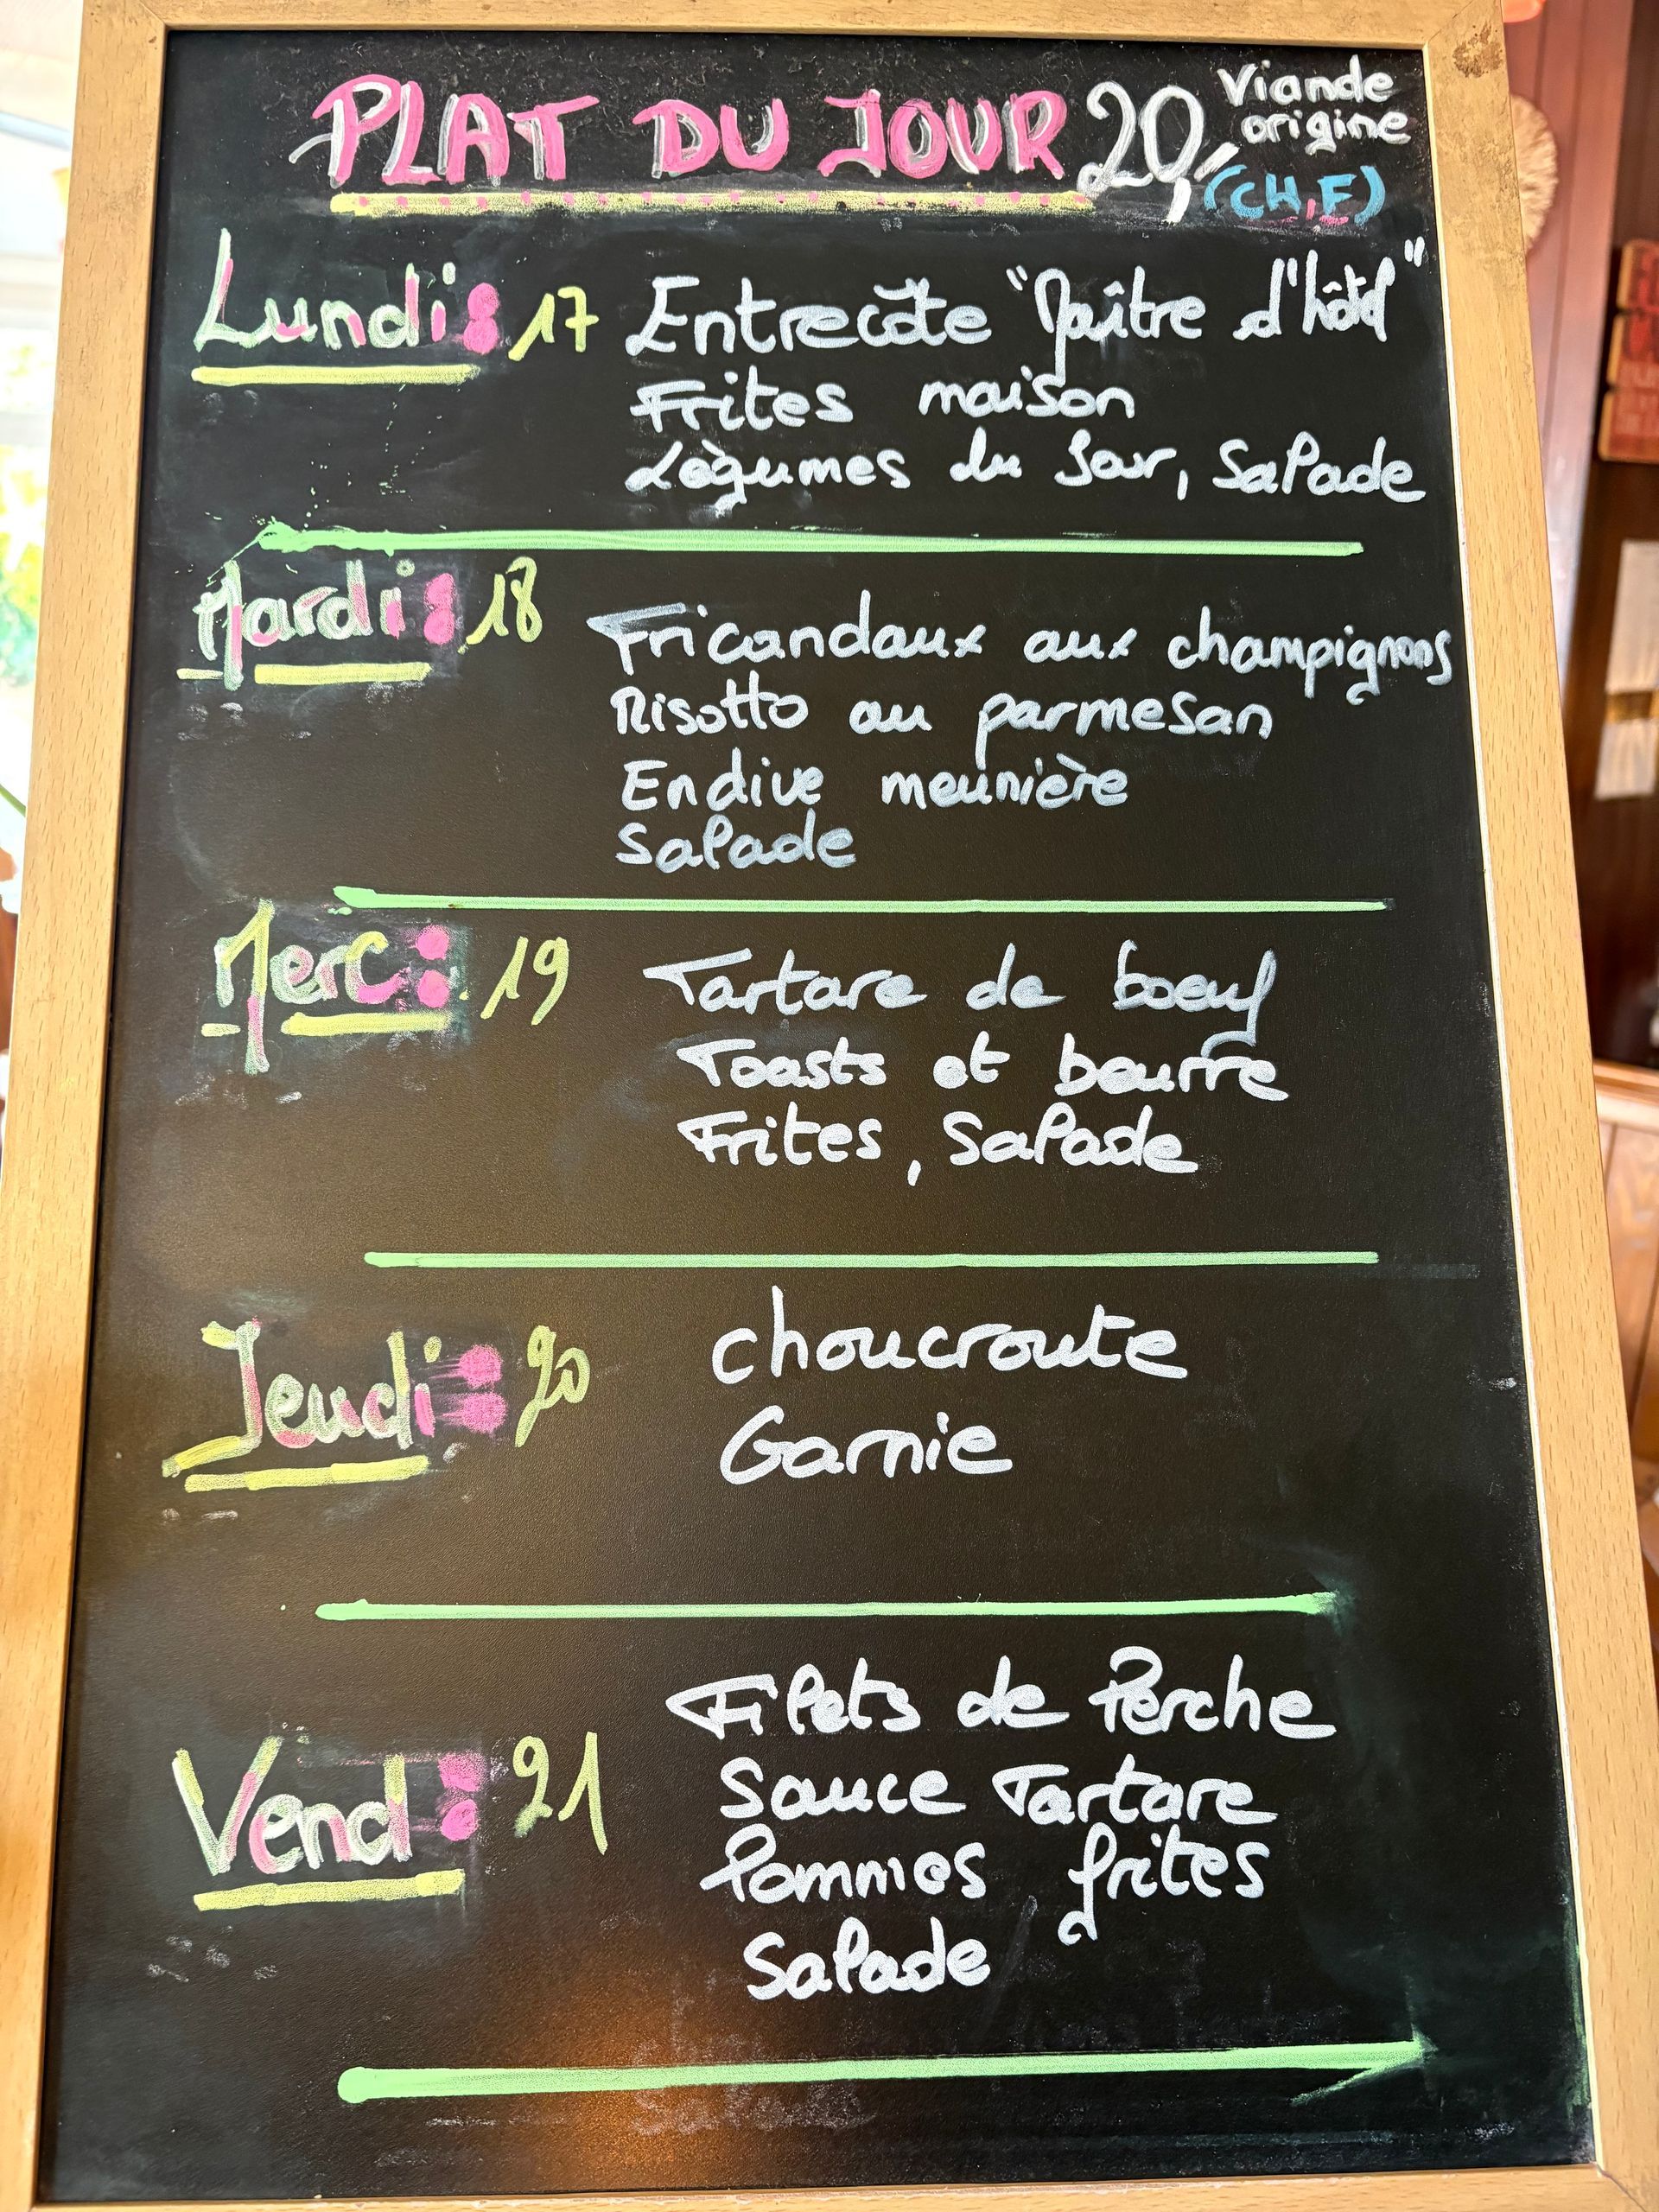 PLAT DU JOUR 20,-
Viande
origine
(CH,F)
Lundi: 17
Entrecôte "Maître d'hôtel"
Frites maison
Légumes du Jour, Salade
Mardi: 18
Fricandaux aux champignons
Risotto au parmesan
Endive meunière
Salade
Merc: 19
Tartare de boeuf
Toasts et beurre
Frites, Salade
Jeudi: 20
choucroute
Garnie
Vend: 21
Filets de Perche
Sauce Tartare
Pommes frites
Salade